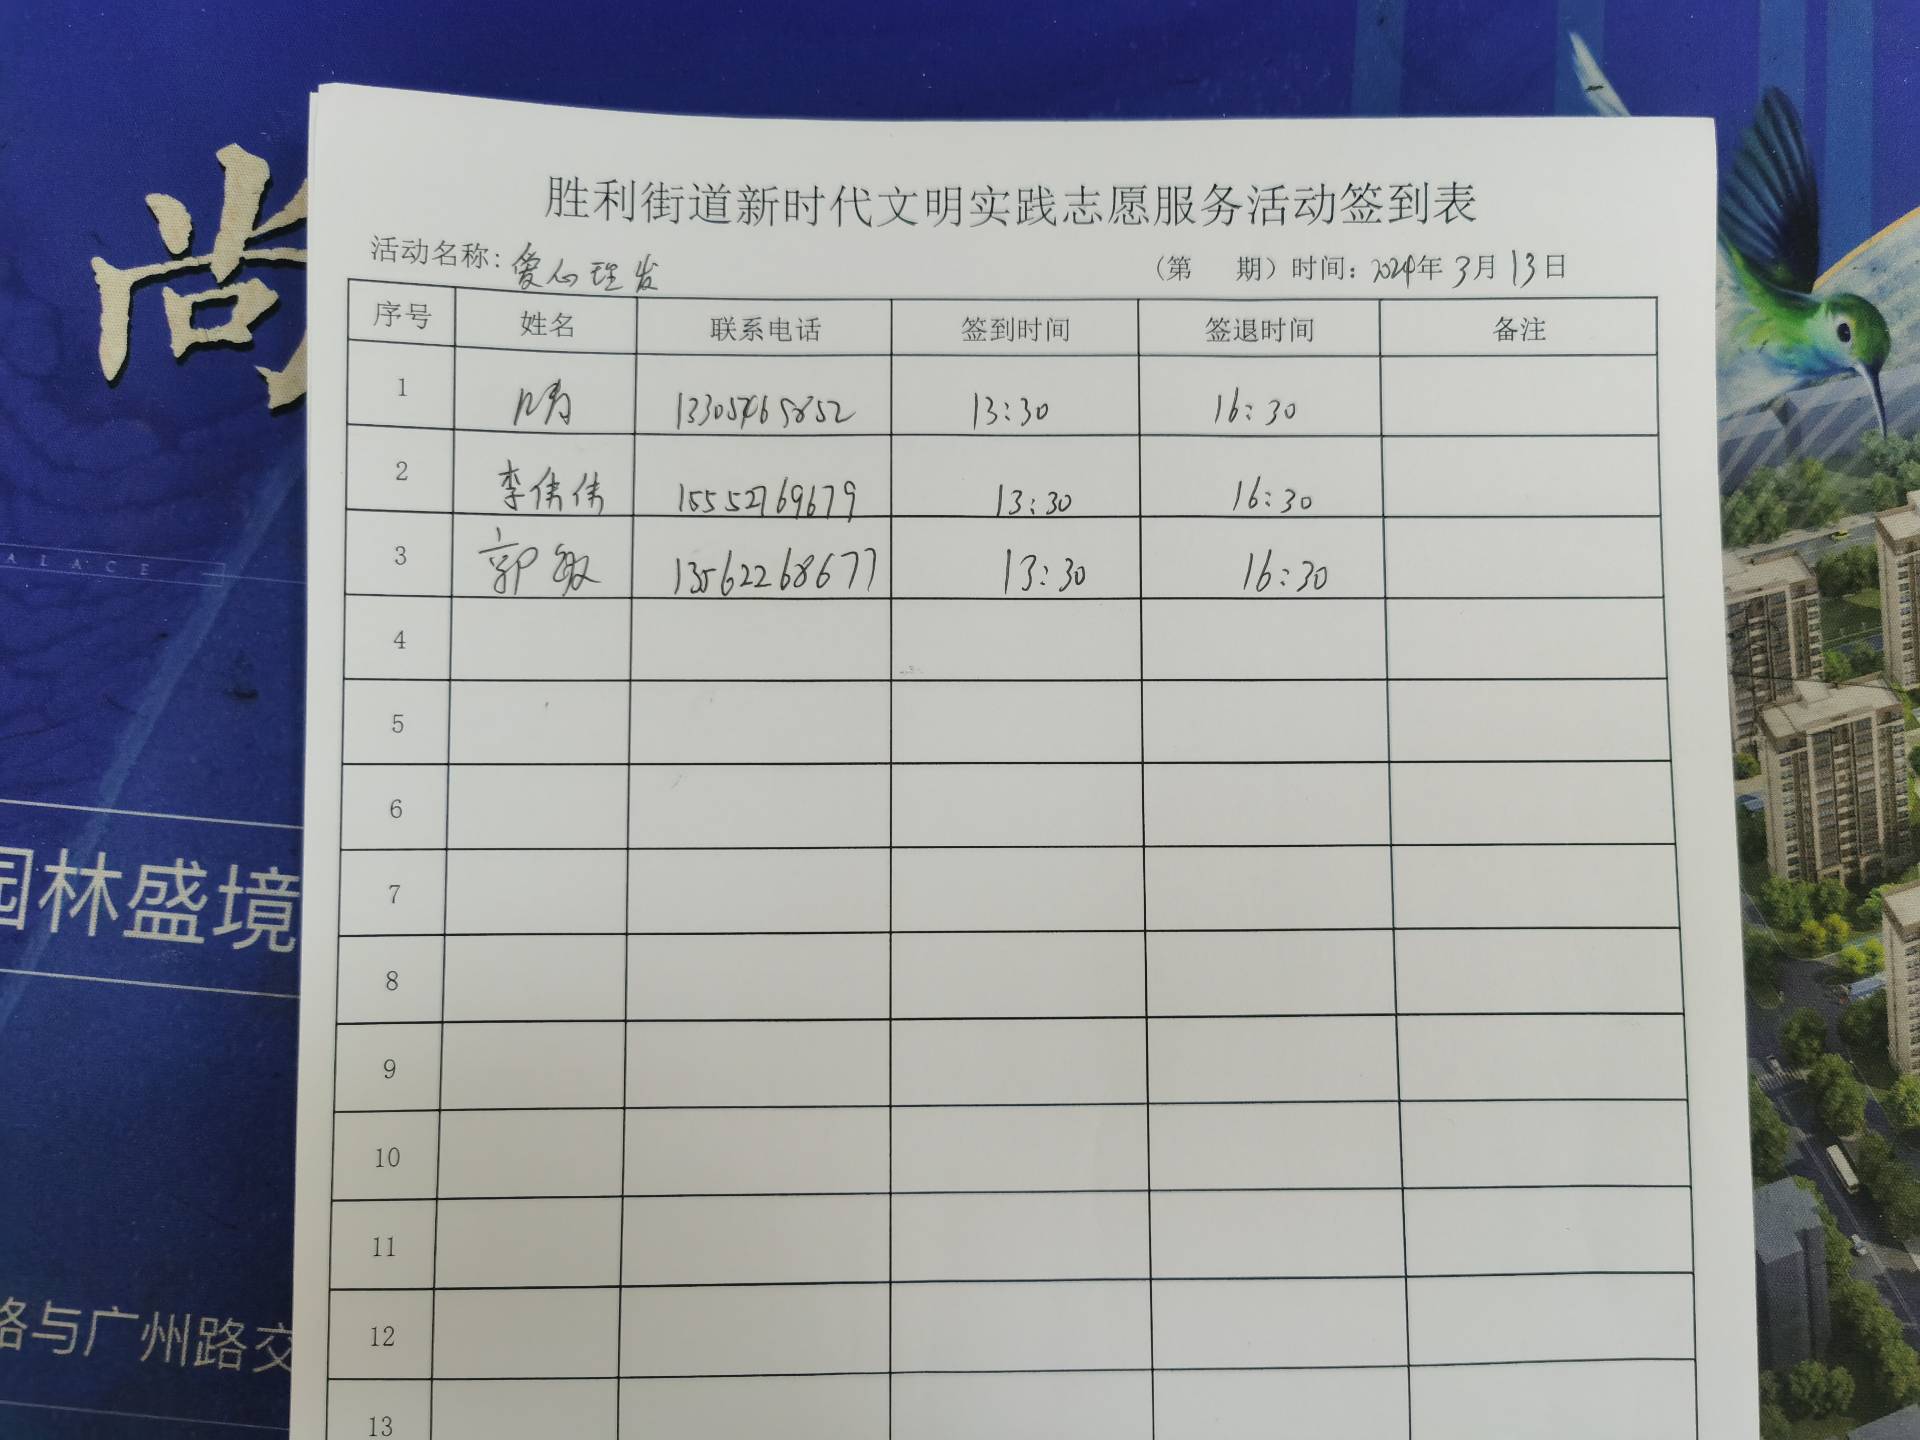 尚
胜利街道新时代文明实践志愿服务活动签到表
活动名称：爱心理发 （第 期）时间：2024年3月13日
序号 姓名 联系电话 签到时间 签退时间 备注
1 13305465852 13:30 16:30
2 李伟伟 15552769679 13:30 16:30
3 郭敏 13562268677 13:30 16:30
4
5
6
7
8
9
10
11
12
13
ALACE
园林盛境
路与广州路交